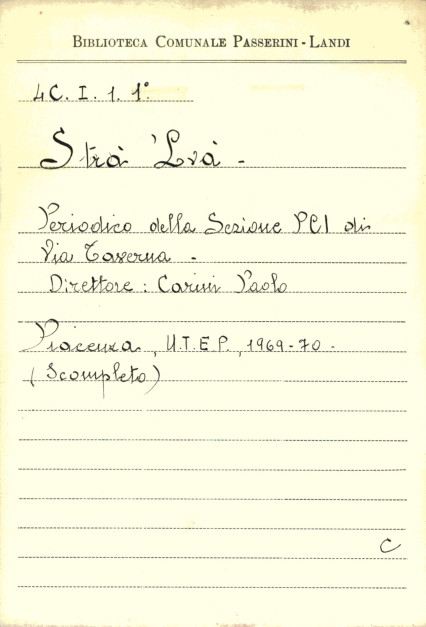 BIBLIOTECA COMUNALE PASSERINI - LANDI
4C. I. 1. 1°
Strà 'Lvà -
Periodico della Sezione PCI di
Via Taverna -
Direttore : Carini Paolo
Piacenza, U.T.E.P., 1969-70 -
(Scompleto)
C